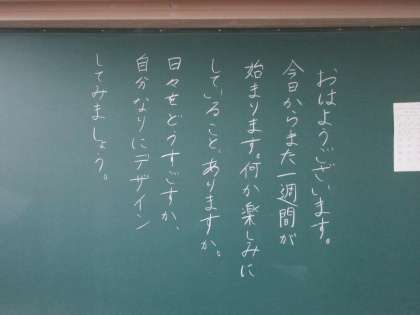 おはようございます。
今日からまた一週間が
始まります。何か楽しみに
していること、ありますか。
日々をどうすごすか、
自分なりにデザイン
してみましょう。